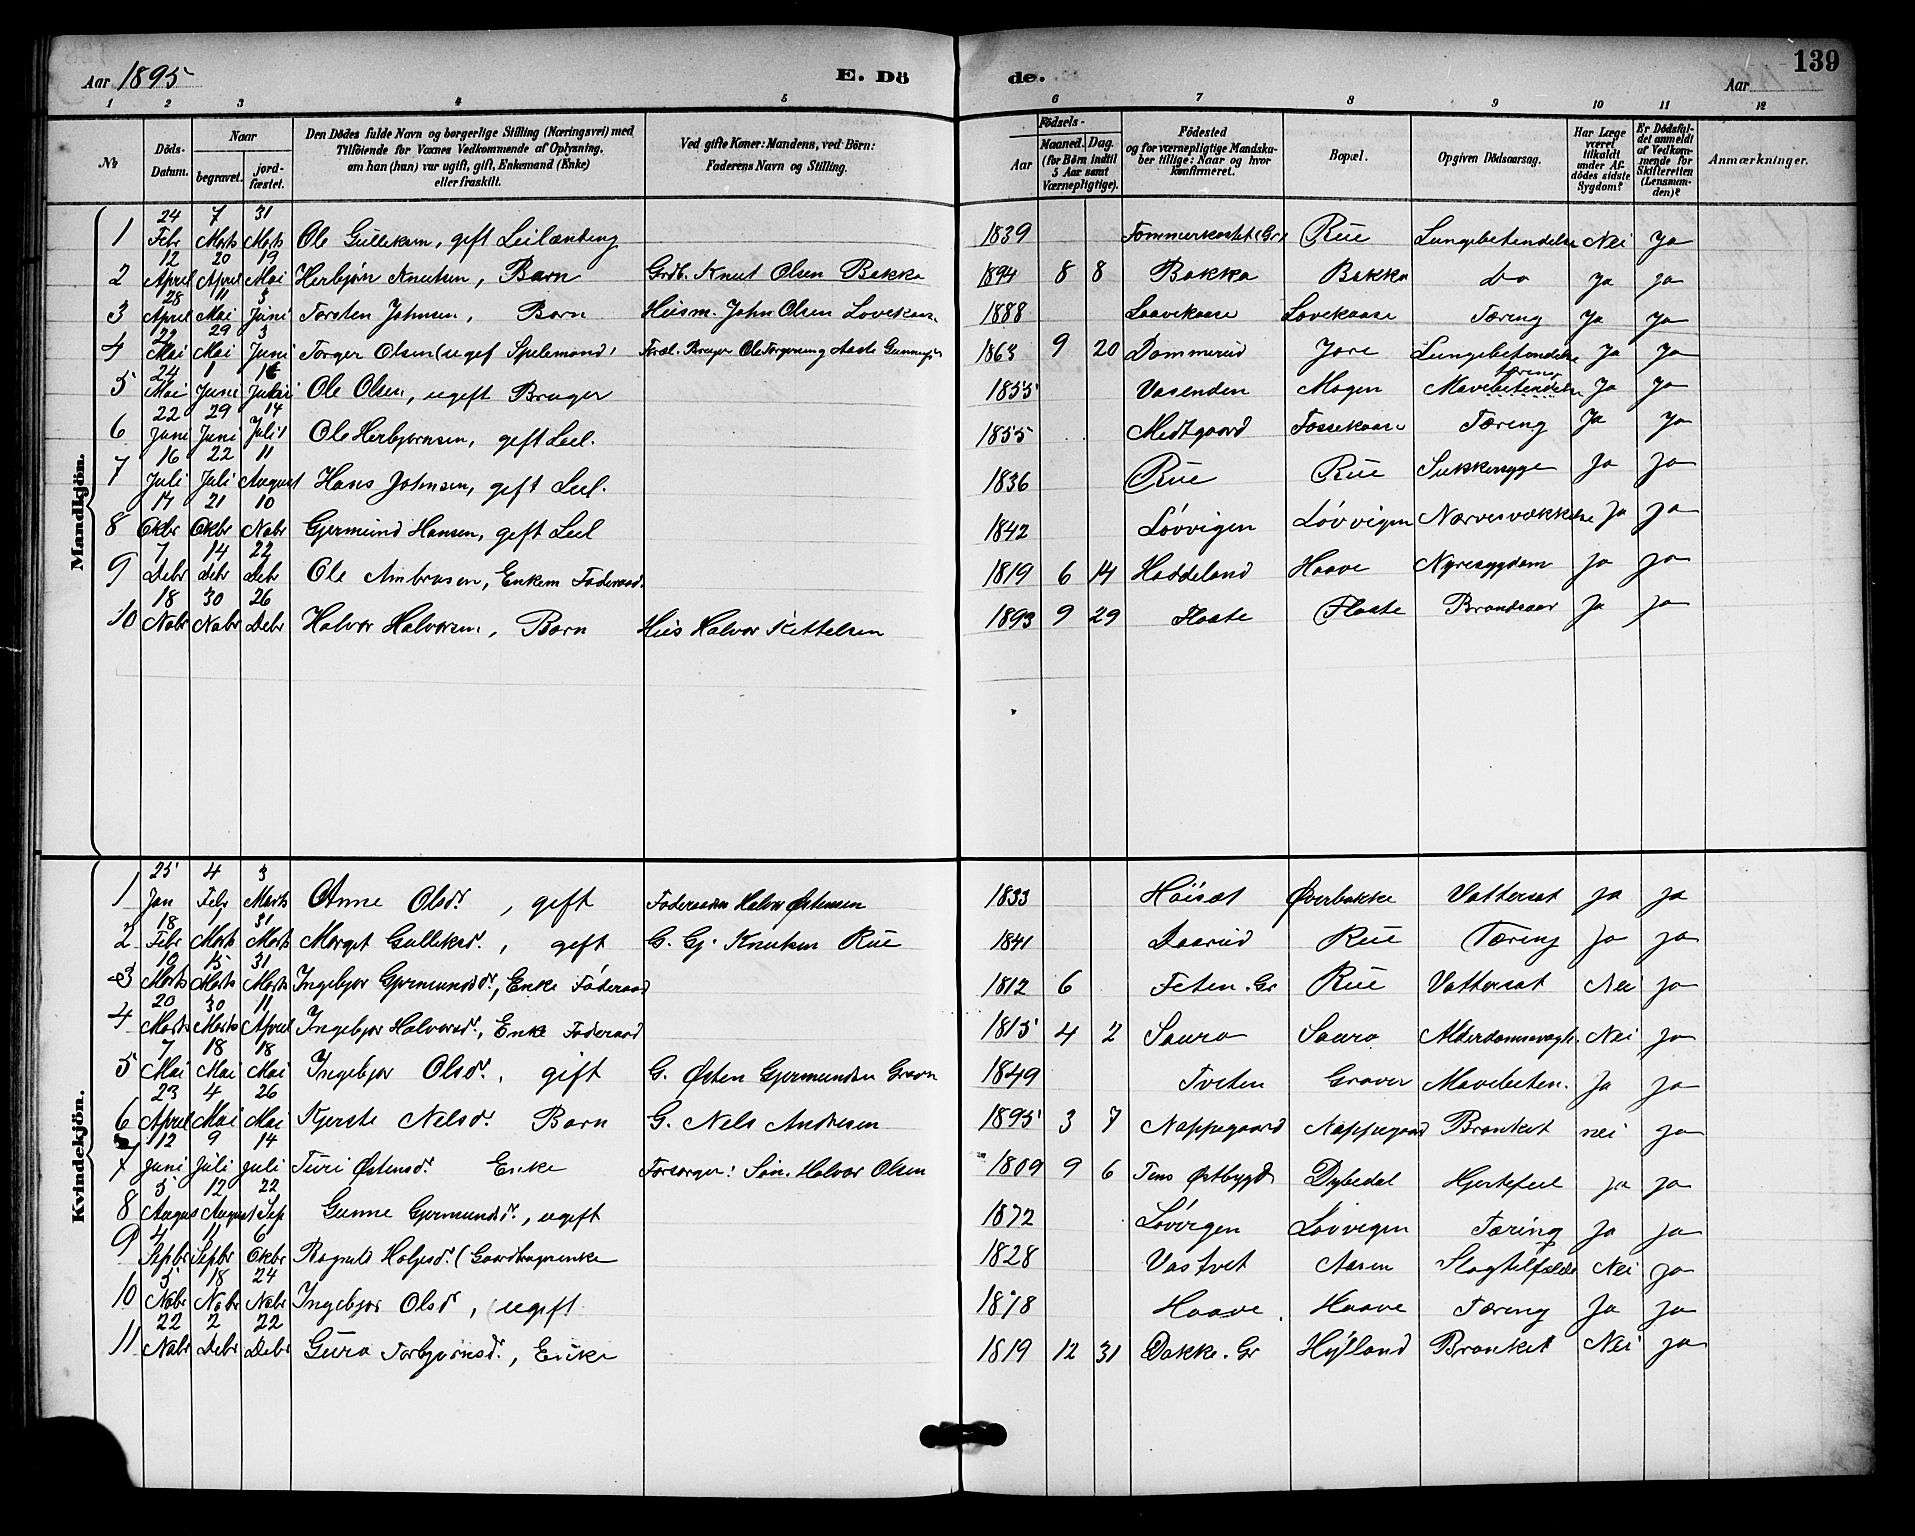 Aar 1895 E. Dö de. Aar 139
1 2 3 4 5 6 7 8 9 10 11 12
No
Döds-Datum.
Naar
begravet.
jord-fæstet.
Den Dödes fulde Navn og borgerlige Stilling (Næringsvei) med
Tilföiende for Voxnes Vedkommende af Oplysning,
om han (hun) var ugift, gift, Enkemand (Enke)
eller fraskilt.
Ved gifte Koner: Mandens, ved Börn:
Faderens Navn og Stilling.
Födsels-
Aar
Maaned. Dag.
(for Börn indtil
5 Aar samt
Værnepligtige).
Födested
og for værnepligtige Mandska-
ber tillige: Naar og hvor
konfirmeret.
Bopæl.
Opgiven Dödsaarsag.
Har Læge
været
tilkaldt
under Af-
dödes sidste
Sygdom?
Er Dödsfal-
det anmeldt
af Vedkom-
mende for
Skifteretten
(Lensman-
den)?
Anmærkninger.
Mandkjön.
1 24 Febr 7 Marts 31 Marts Ole Gulleksen, gift Leilænding 1839 Rue Lungebetendelse Nei Ja
2 12 April 20 April 19 Mai Herbjøn Knutsen, Barn Grdb. Knut Olsen Bakka 1894 8 8 Bakka Bakka do Ja Ja
3 28 April 11 Mai 3 Juni Torsten Johnsen, Barn Husm. John Olsen Lovekaase 1888 Laavekaase Lovekaase Tæring Ja Ja
4 22 Mai 29 Mai 3 Juni Torger Olsen (ugift Spelemand) 1863 9 20 Dammerud Jore Lungebetendelse Ja Ja
5 24 Mai 1 Juni Ole Olsen, ugift Bruger 1855 Vasenden Mogen Mavebetendelse tæring Ja Ja
6 22 Juni 29 Juni 14 Juli Ole Herbjørnsen, gift Leil. 1855 Midtgaard Fossekaase Tæring Ja Ja
7 16 Juli 22 Juli 11 August Hans Johnsen, gift Leil. 1836 Rue Rue Sukkersyge Ja Ja
8 14 Oktbr 21 Oktbr 10 Nobr Gjermund Hansen, gift Leil 1842 Løvvigen Løvvigen Nærvesvækkelse Ja Ja
9 7 Debr 14 Debr 22 Debr Ole Ambrosen, Enkem Føderaad. 1819 6 14 Haddeland Haave Nyresygdom Ja Ja
10 18 Nobr 30 Nobr 26 Debr Halvor Halvorsen, Barn Hus Halvor Kittelsen 1893 9 29 Flaate Flaate Brandsaar Ja Ja
Kvindekjön.
1 25 Jan 4 Febr 3 Marts Anne Olsdr., gift Føderaadm Halvor Østensen 1833 Høisæt Øverbakke Vattersot Ja Ja
2 18 Febr Marts 31 Marts Marget Gulleksdr., gift G. Gj. Knutsen Rue 1841 Daarud Rue Tæring Ja Ja
3 10 Marts 15 Marts 31 Marts Ingebjor Gjermundsdr., Enke Føderaad 1812 6 Feten. Gr Rue Vattersot Nei Ja
4 20 Marts 30 Marts 11 April Ingebjor Halvorsdr., Enke Føderaad 1815 4 2 Saura Saura Alderdomssvagh. Nei Ja
5 7 Mai 18 Mai 18 Mai Ingebjor Olsdr. gift G. Østen Gjermundsen Graver 1849 Tveten Graver Mavebeten. Ja Ja
6 23 April 4 Mai 26 Mai Kjerste Nelsdr. Barn G. Nels Andresen 1895 3 7 Nappegaard Nappegaard Bronket nei Ja
7 12 Juni 9 Juli 14 Juli Turi Østensdr. Enke Forsørger: Søn. Halvor Olsen 1809 9 6 Tins Østbygd Dybedal Hjertefeil Ja Ja
8 5 August 12 August 22 Sep Gunne Gjermundsdr., ugift 1872 Løvvigen Løvvigen Tæring Ja Ja
9 4 Sepbr 11 Sepbr 6 Oktbr Ragnild Holjesdr. (Gaardbrugerenke 1828 Vastvet Aasen Slagtilfælde Nei Ja
10 5 Nobr 18 Nobr 24 Nobr Ingebjor Olsdr, ugift 1878 Haave Haave Tæring Ja Ja
11 22 Nobr 2 Debr 22 Debr Guro Torbjørnsdr., Enke 1819 12 31 Bakke. Gr Hylland Bronket Nei Ja